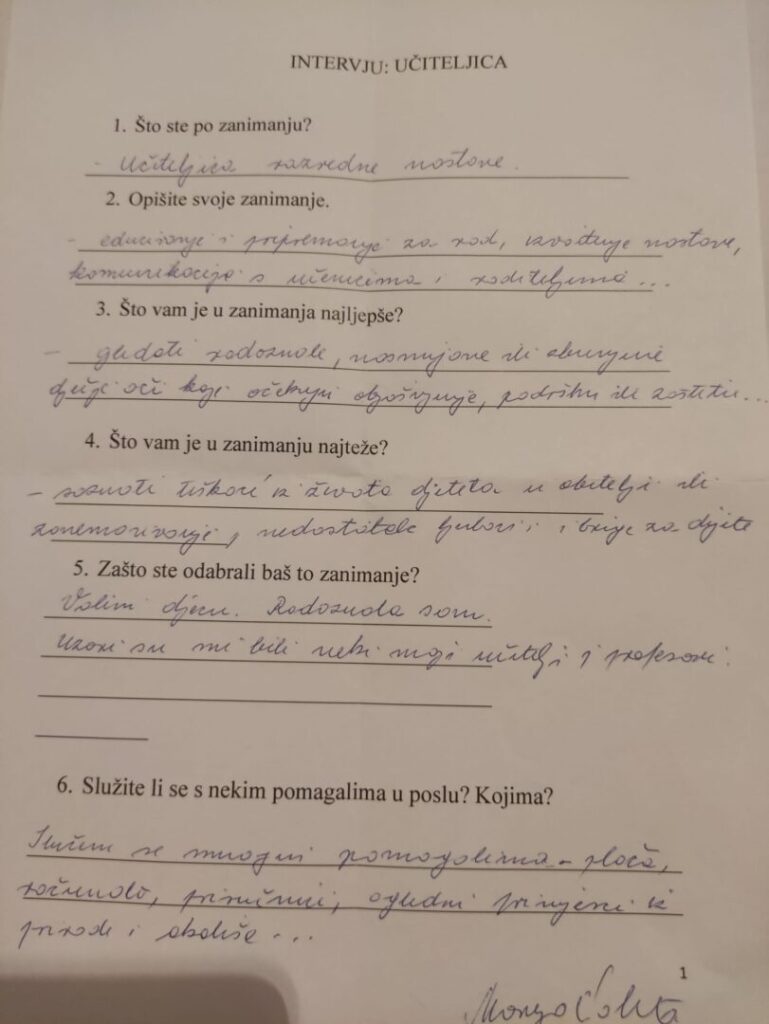 INTERVJU: UČITELJICA
1. Što ste po zanimanju?
- Učiteljica razredne nastave.
2. Opišite svoje zanimanje.
- educiranje i pripremanje za rad, izvođenje nastave,
komunikacija s učenicima i roditeljima...
3. Što vam je u zanimanja najljepše?
- gledati radoznale, nasmijane ili zbunjene
dječje oči koje očekuju objašnjenje, podršku ili zaštitu...
4. Što vam je u zanimanju najteže?
- saznati teškoće iz života djeteta u obitelji ili
zanemarivanje, nedostatak ljubavi i brige za dijete
5. Zašto ste odabrali baš to zanimanje?
Volim djecu. Radoznala sam.
Uzori su mi bili neki moji učitelji i profesori.
6. Služite li se s nekim pomagalima u poslu? Kojima?
Služim se mnogim pomagalima - ploča,
računalo, priručnici, ogledni primjeri iz
prirode i okoliša...
1